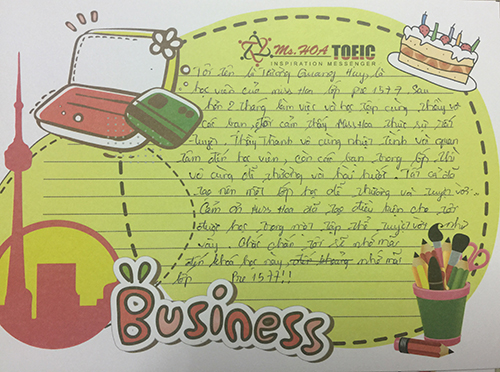 Ms. HOA TOEIC
INSPIRATION MESSENGER
Tôi tên là Trương Quang Huy, là
học viên của Miss Hoa lớp Pre 1577. Sau
hơn 2 tháng làm việc và học tập cùng thầy và
các bạn, tôi cảm thấy Miss Hoa thực sự rất
tuyệt. Thầy Thanh vô cùng nhiệt tình và quan
tâm đến học viên, còn các bạn trong lớp thì
vô cùng dễ thương và hài hước. Tất cả đã
tạo nên một lớp học dễ thương và tuyệt vời.
Cảm ơn Miss Hoa đã tạo điều kiện cho tôi
được học trong một tập thể tuyệt vời như
vậy. Chắc chắn tôi sẽ nhớ mãi
đến khoá học này, nhớ mãi
lớp Pre 1577!!!
BUSINESS